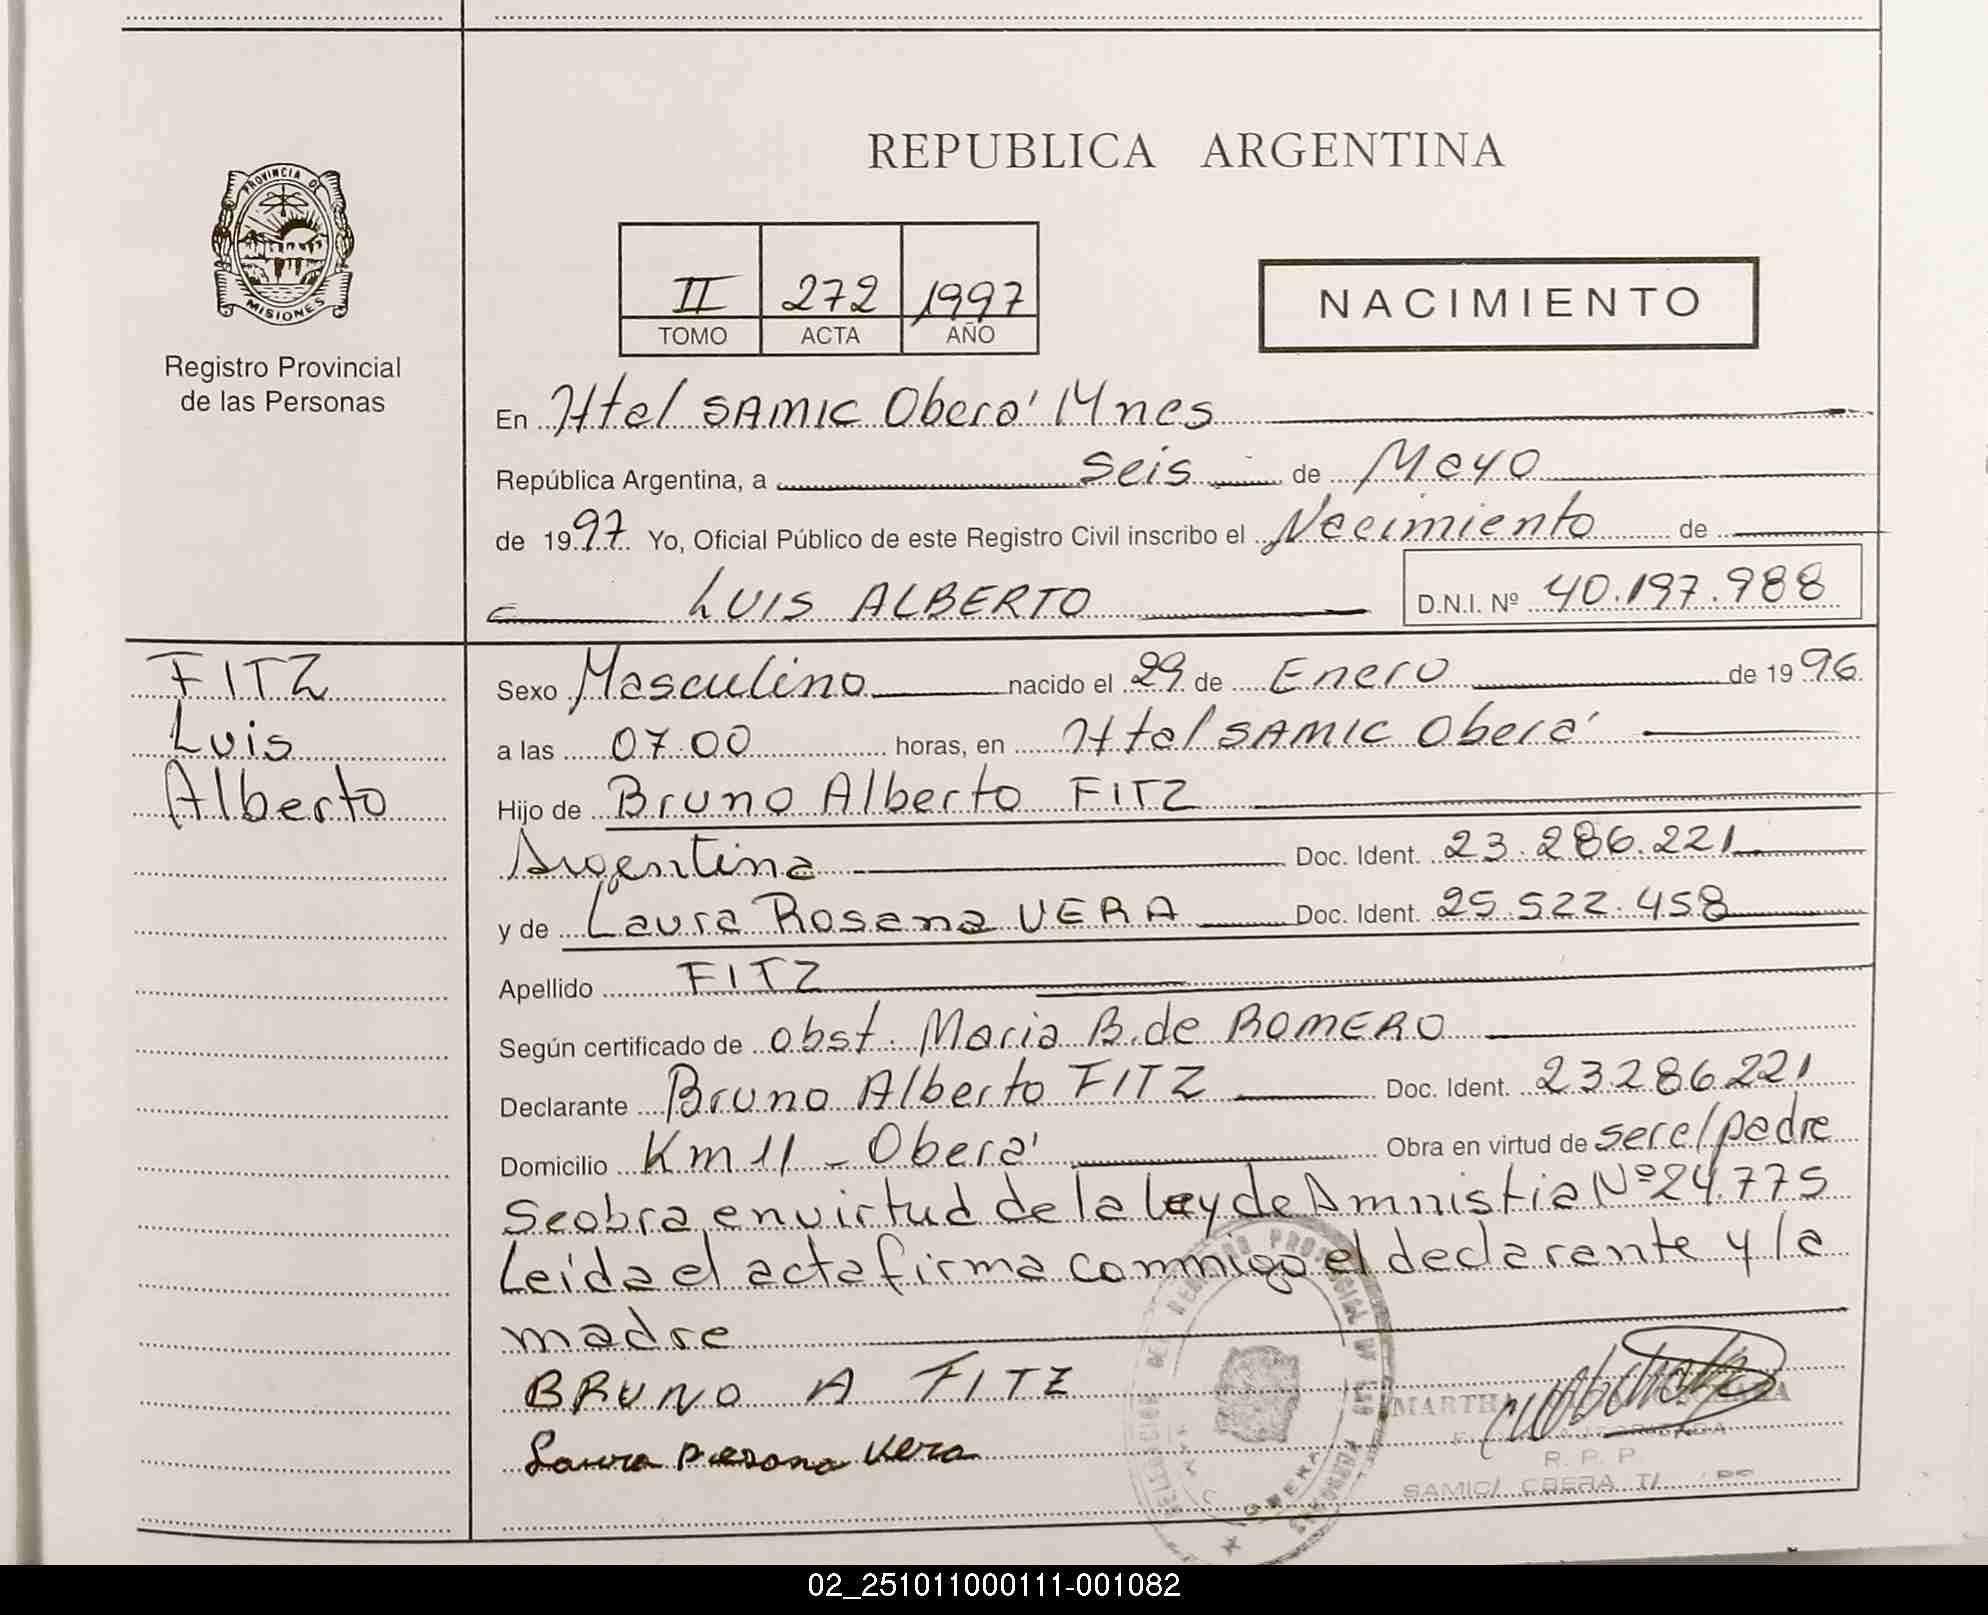 REPUBLICA ARGENTINA
PROVINCIA DE
MISIONES
Registro Provincial
de las Personas
II 272 1997
TOMO ACTA AÑO
NACIMIENTO
En Htal SAMIC Oberá Mnes
República Argentina, a seis de Mayo
de 1997 Yo, Oficial Público de este Registro Civil inscribo el Nacimiento de
LUIS ALBERTO D.N.I. Nº 40.197.988
FITZ
Luis
Alberto
Sexo Masculino nacido el 29 de Enero de 1996
a las 07.00 horas, en Htal SAMIC Oberá
Hijo de Bruno Alberto FITZ
Argentina Doc. Ident. 23.286.221
y de Laura Rosana VERA Doc. Ident. 25.522.458
Apellido FITZ
Según certificado de obst. Maria B. de ROMERO
Declarante Bruno Alberto FITZ Doc. Ident. 23286221
Domicilio Km 11 - Oberá Obra en virtud de ser el padre
Se obra en virtud de la ley de Amnistia Nº 24.775
Leida el acta firma conmigo el declarante y la
madre
BRUNO A FITZ
Laura Rosana Vera
MARTHA
R. P. P.
SAMIC/ OBERA
02_251011000111-001082